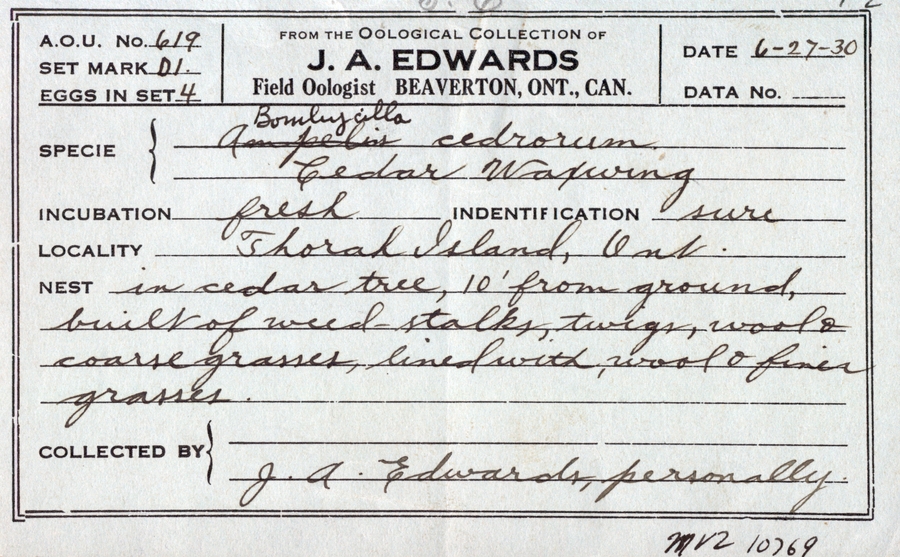 A.O.U. No. 619
SET MARK D1.
EGGS IN SET 4
FROM THE OOLOGICAL COLLECTION OF
J. A. EDWARDS
Field Oologist BEAVERTON, ONT., CAN.
DATE 6-27-30
DATA No.
Bombycilla
SPECIE Ampelis cedrorum
Cedar Waxwing
INCUBATION fresh INDENTIFICATION sure
LOCALITY Thorah Island, Ont.
NEST in cedar tree, 10' from ground,
built of weed-stalks, twigs, wool &
coarse grasses, lined with, wool & finer
grasses.
COLLECTED BY
J. A. Edwards, personally.
MVZ 10769